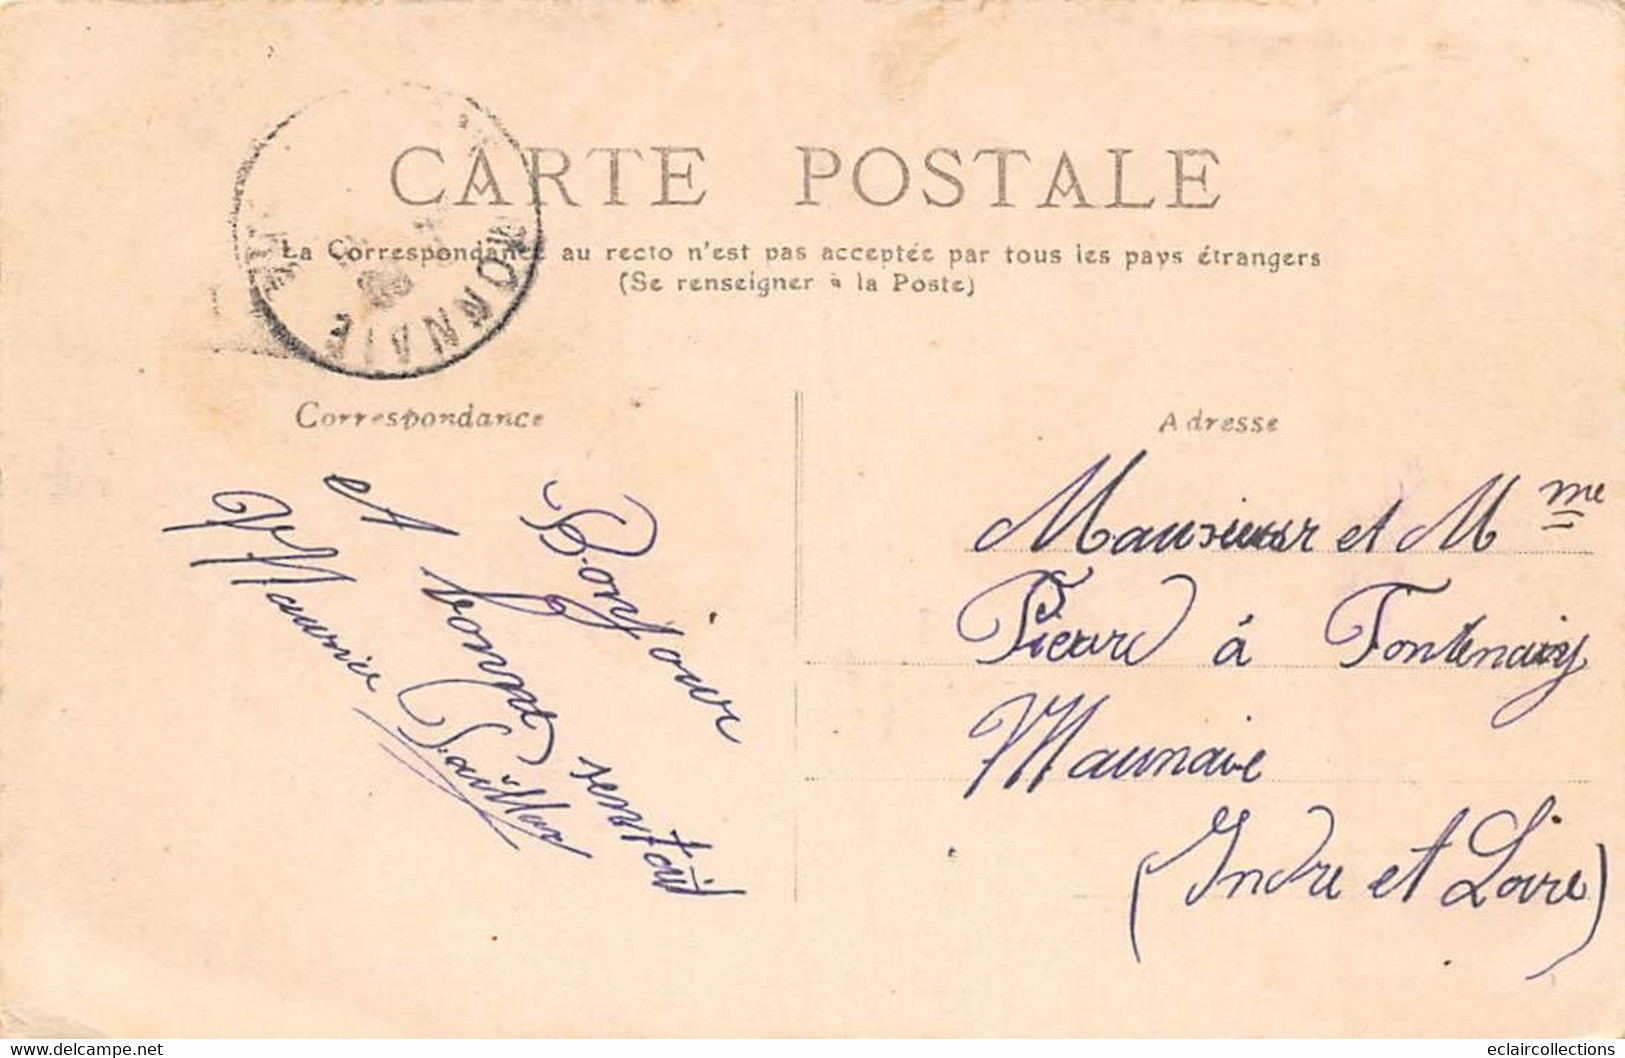 CARTE POSTALE
La Correspondance au recto n'est pas acceptée par tous les pays étrangers
(Se renseigner à la Poste)
MONNAIE
Correspondance
Bonjour
et bonne
Maurice
Adresse
Monsieur et Mme
Pierre à Fontenay
Maunaie
(Indre et Loire)
www.delcampe.net
eclaircollections